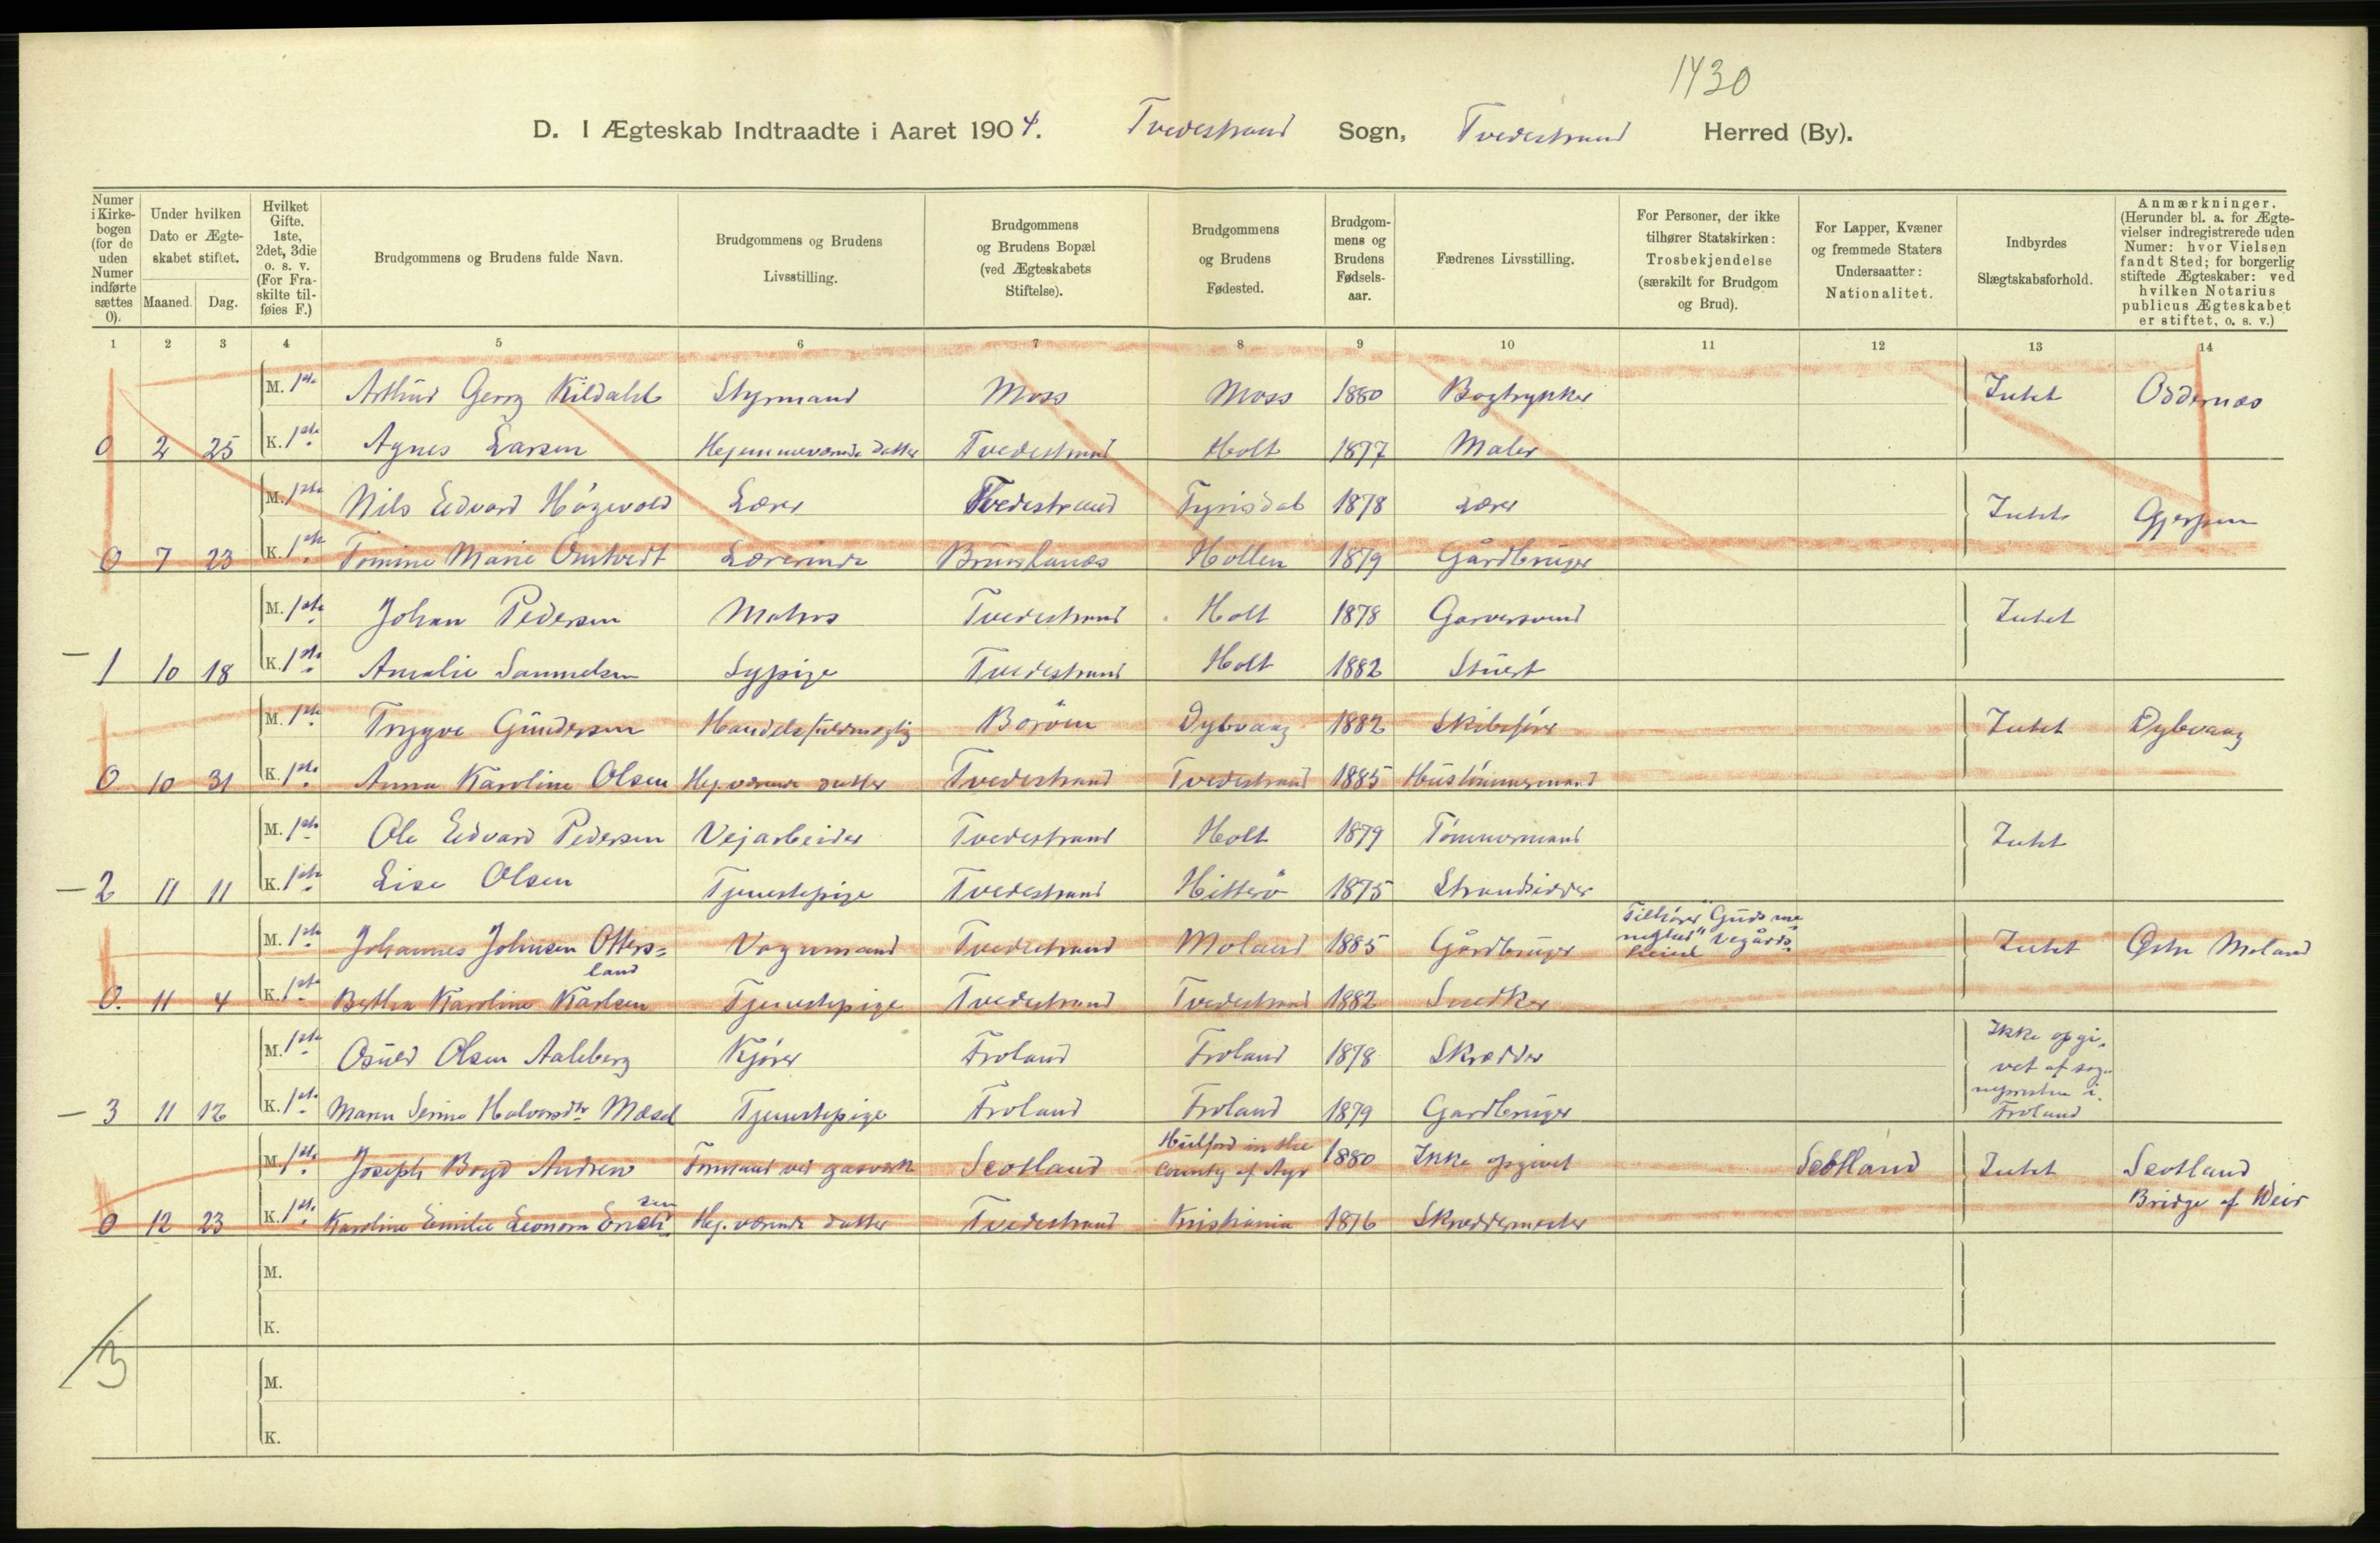 1430
D. I Ægteskab Indtraadte i Aaret 1904. Tvedestrand Sogn, Tvedestrand Herred (By).
Numer i Kirkebogen (for de uden Numer indførte sættes 0). | Under hvilken Dato er Ægteskabet stiftet. Maaned. Dag. | Hvilket Gifte. 1ste, 2det, 3die o. s. v. (For Fraskilte tilføies F.) | Brudgommens og Brudens fulde Navn. | Brudgommens og Brudens Livsstilling. | Brudgommens og Brudens Bopæl (ved Ægteskabets Stiftelse). | Brudgommens og Brudens Fødested. | Brudgommens og Brudens Fødselsaar. | Fædrenes Livsstilling. | For Personer, der ikke tilhører Statskirken: Trosbekjendelse (særskilt for Brudgom og Brud). | For Lapper, Kvæner og fremmede Staters Undersaatter: Nationalitet. | Indbyrdes Slægtskabsforhold. | Anmærkninger. (Herunder bl. a. for Ægtevielser indregistrerede uden Numer: hvor Vielsen fandt Sted; for borgerlig stiftede Ægteskaber: ved hvilken Notarius publicus Ægteskabet er stiftet, o. s. v.)
1 2 3 4 5 6 7 8 9 10 11 12 13 14
M. 1ste Arthur Georg Kildahl Styrmand Moss Moss 1880 Bogtrykker Intet Oddernæs
0 2 25 K. 1ste Agnes Larsen Hejemmeværende datter Tvedestrand Holt 1877 Maler
M. 1ste Nils Edvard Høgevold Lærer Tvedestrand Tyrisdal 1878 Lærer Intet Gjerpen
0 7 23 K. 1ste Tomine Marie Omtvedt Lærerinde Brunlanæs Hollen 1879 Gårdbruger
M. 1ste Johan Pedersen Matros Tvedestrand Holt 1878 Garversvend Intet
1 10 18 K. 1ste Amalie Samuelsen Sypige Tvedestrand Holt 1882 Stuert
M. 1ste Trygve Gundersen Handelsfuldmægtig Borøen Dybvaag 1882 Skibsfører Intet Dybvaag
0 10 31 K. 1ste Anna Karoline Olsen Hej. værende datter Tvedestrand Tvedestrand 1885 Hustømmermand
M. 1ste Ole Edvard Pedersen Vejarbeider Tvedestrand Holt 1879 Tømmermand Intet
2 11 11 K. 1ste Lise Olsen Tjenestepige Tvedestrand Hitterø 1875 Strandsidder
M. 1ste Johannes Johnsen Ottersland Vognmand Tvedestrand Moland 1885 Gårdbruger Tilhører "Guds menighed" Vegårdsheied Intet Østre Moland
0. 11 4 K. 1ste Berthea Karoline Karlsen Tjenestepige Tvedestrand Tvedestrand 1882 Snedker
M. 1ste Osuld Olsen Aalsberg Kjører Froland Froland 1878 Skrædder Ikke opgivet af sognepresten i Froland
3 11 12 K. 1ste Maren Serine Halvorsdtr Mæsel Tjenestepige Froland Froland 1879 Gardbruger
M. 1ste Joseph Boyd Andrew Formand ved gasværk Scotland Hulford in the county of Ayr 1880 Ikke opgivet Scotland Intet Scotland
0 12 23 K. 1ste Karoline Emilie Leonora Erichsen Hej. værende datter Tvedestrand Kristiania 1876 Skræddermester Bridge of Weir
M.
K.
M.
K.
3